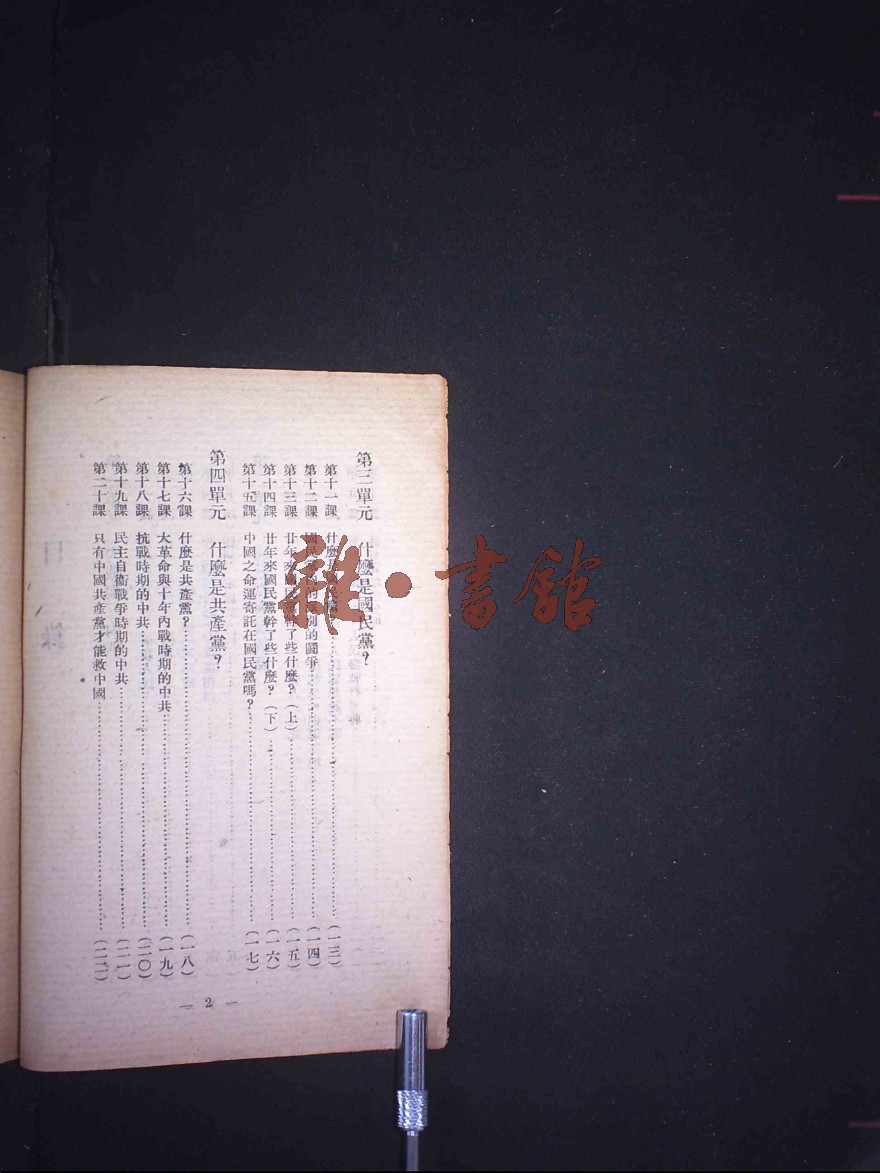 第三單元　什麼是國民黨？
第十一課　什麼是國民黨？……（一三）
第十二課　國民黨內的派別的鬪爭……（一四）
第十三課　廿年來國民黨幹了些什麼？（上）……（一五）
第十四課　廿年來國民黨幹了些什麼？（下）……（一六）
第十五課　中國之命運寄託在國民黨嗎？……（一七）
第四單元　什麼是共產黨？
第十六課　什麼是共產黨？……（一八）
第十七課　大革命與十年內戰時期的中共……（一九）
第十八課　抗戰時期的中共……（二〇）
第十九課　民主自衛戰爭時期的中共……（二一）
第二十課　只有中國共產黨才能救中國……（二二）
— 2 —
雜·書館